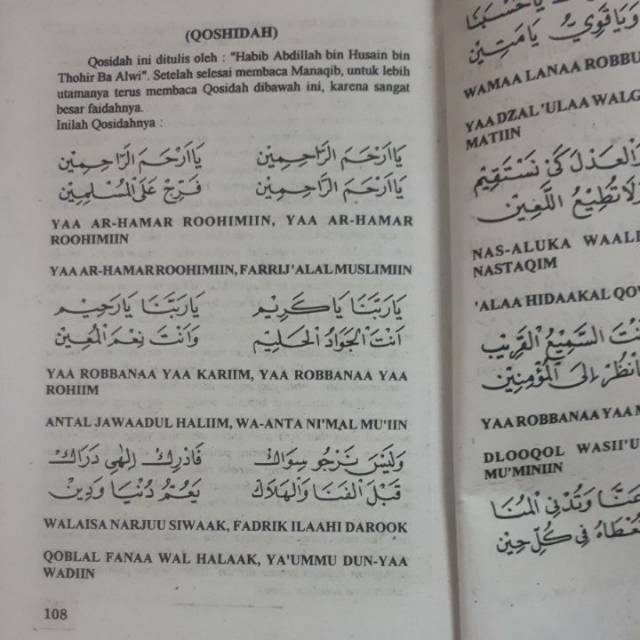 (QOSHIDAH)
Qosidah ini ditulis oleh : "Habib Abdillah bin Husain bin
Thohir Ba Alwi". Setelah selesai membaca Manaqib, untuk lebih
utamanya terus membaca Qosidah dibawah ini, karena sangat
besar faidahnya.
Inilah Qosidahnya :
يَا اَرْحَمَ الرَّاحِمِيْنَ يَا اَرْحَمَ الرَّاحِمِيْنَ
يَا اَرْحَمَ الرَّاحِمِيْنَ فَرِّجْ عَلَى الْمُسْلِمِيْنَ
YAA AR-HAMAR ROOHIMIIN, YAA AR-HAMAR
ROOHIMIIN
YAA AR-HAMAR ROOHIMIIN, FARRIJ 'ALAL MUSLIMIIN
يَارَبَّنَا يَاكَرِيْم يَارَبَّنَا يَارَحِيْم
اَنْتَ الْجَوَادُ الْحَلِيْم وَاَنْتَ نِعْمَ الْمُعِيْن
YAA ROBBANAA YAA KARIIM, YAA ROBBANAA YAA
ROHIIM
ANTAL JAWAADUL HALIIM, WA-ANTA NI'MAL MU'IIN
وَلَيْسَ نَرْجُو سِوَاكْ فَادْرِكْ اِلٰهِى دَرَاكْ
قَبْلَ الْفَنَا وَالْهَلَاكْ يَعُمُّ دُنْيَا وَدِيْن
WALAISA NARJUU SIWAAK, FADRIK ILAAHI DAROOK
QOBLAL FANAA WAL HALAAK, YA'UMMU DUN-YAA
WADIIN
108
وَيَاقَوِيُّ يَامَتِيْن
WAMAA LANAA ROBBU
YAA DZAL 'ULAA WALG
MATIIN
الْعَدْلَ كَيْ نَسْتَقِيْم
نُطِيْعُ اللَّعِيْن
NAS-ALUKA WAALI
NASTAQIM
'ALAA HIDAAKAL QO
السَّمِيْعُ الْقَرِيْب
اِلَى الْمُؤْمِنِيْن
YAA ROBBANAA YAA
DLOOQOL WASII'U
MU'MINIIN
وَتُدْنِي الْمُنَا
فِي كُلِّ حِيْن